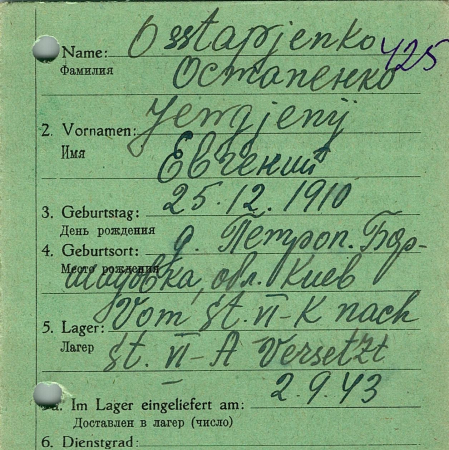 1. Name: Osstapjenko 425
Фамилия Остапенко
2. Vornamen: Jewgjenij
Имя Евгений
3. Geburtstag: 25.12.1910
День рождения
4. Geburtsort: д. Петроп. Бор-
Место рождения щаговка, обл. Киев
5. Lager: Vom St. VI-K nach
Лагер St. VI-A Versetzt
a. Im Lager eingeliefert am: 2.9.43
Доставлен в лагер (число)
6. Dienstgrad: